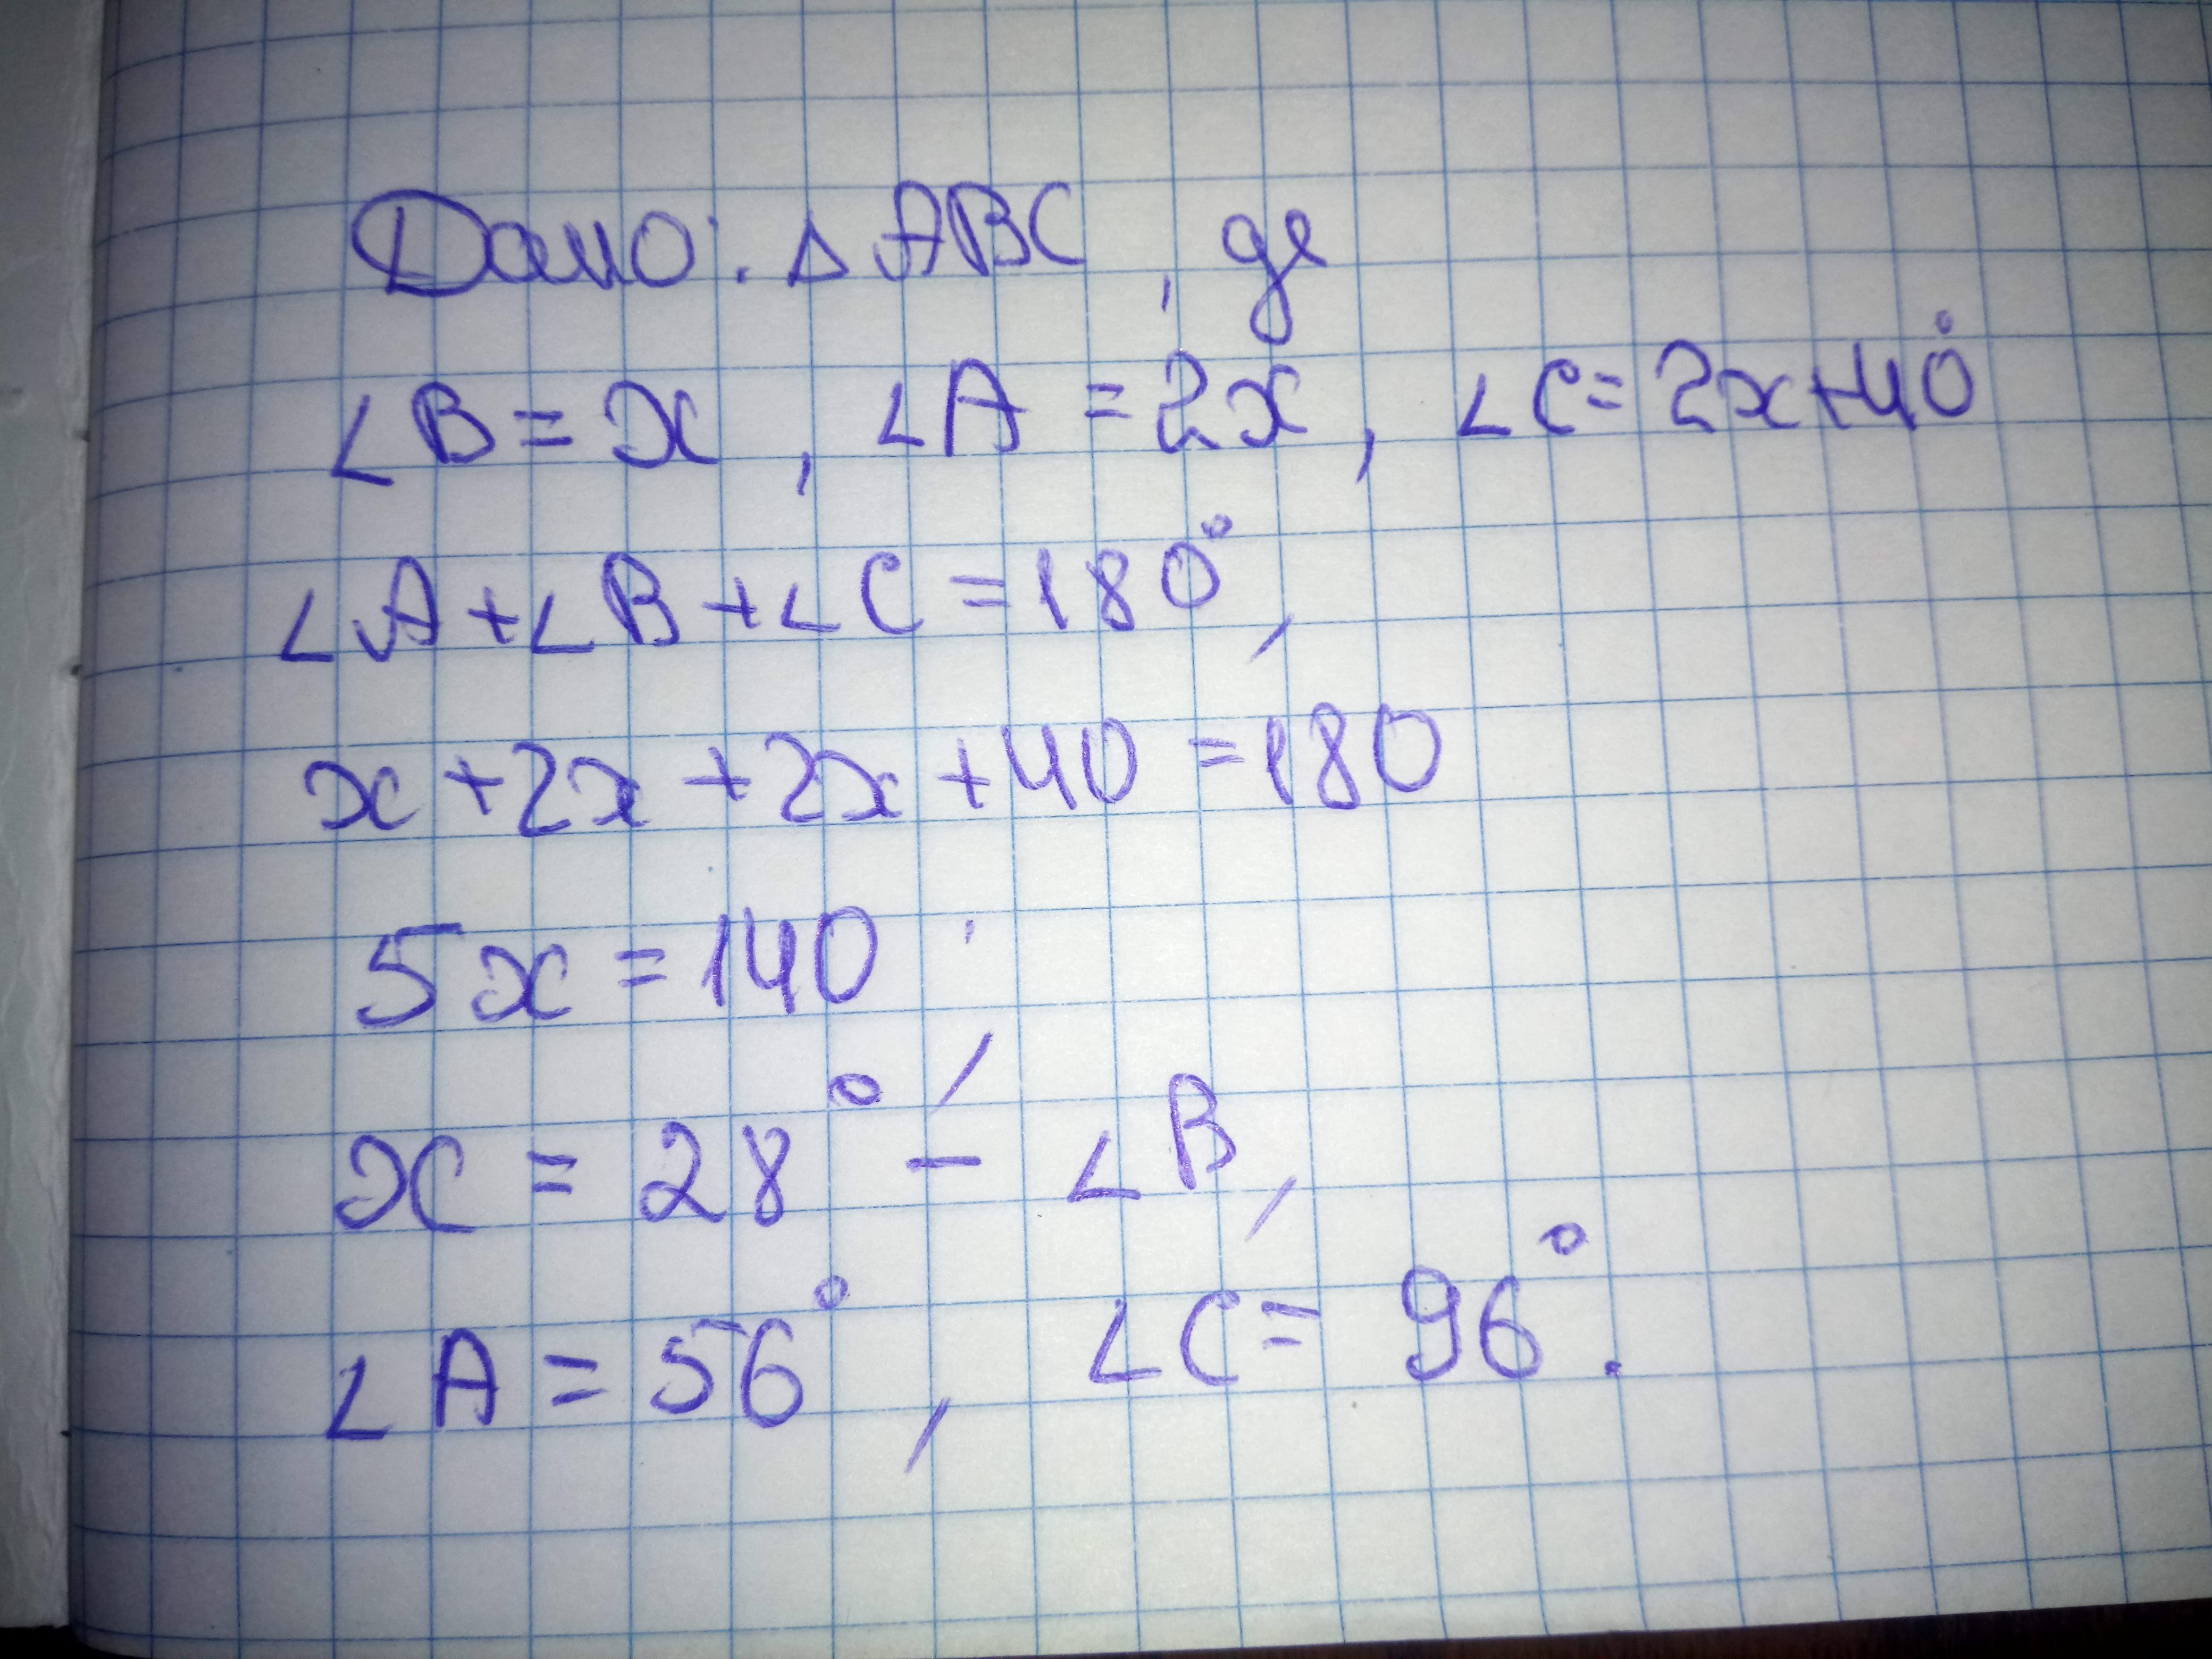 Дано: △ABC, де
∠B = x, ∠A = 2x, ∠C = 2x+40°
∠A+∠B+∠C = 180°,
x+2x+2x+40 = 180
5x = 140
x = 28° – ∠B,
∠A = 56°, ∠C = 96°.